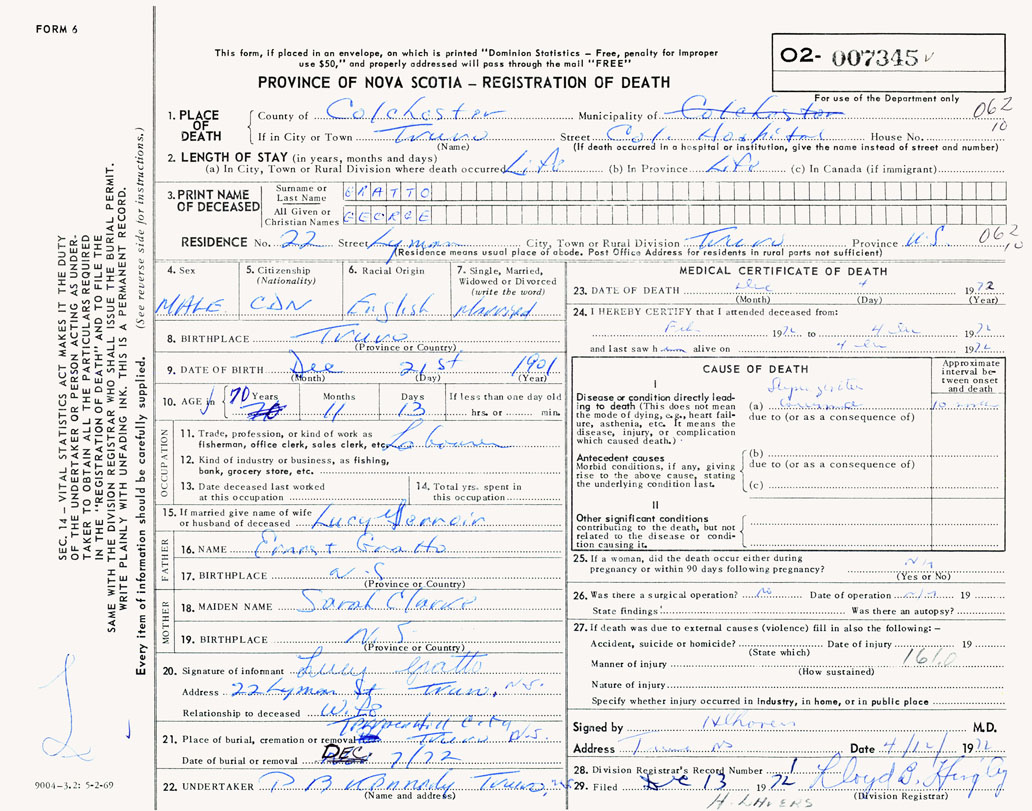 FORM 6
This form, if placed in an envelope, on which is printed "Dominion Statistics – Free, penalty for improper
use $50," and properly addressed will pass through the mail "FREE"
PROVINCE OF NOVA SCOTIA – REGISTRATION OF DEATH
02- 007345
For use of the Department only
062
10
1. PLACE OF DEATH
County of Colchester Municipality of Colchester
If in City or Town Truro Street Col. Hospital House No.
(Name) (If death occurred in a hospital or institution, give the name instead of street and number)
2. LENGTH OF STAY (in years, months and days)
(a) In City, Town or Rural Division where death occurred Life (b) In Province Life (c) In Canada (if immigrant)
3. PRINT NAME OF DECEASED
Surname or Last Name GRATTO
All Given or Christian Names GEORGE
RESIDENCE No. 22 Street Lyman City, Town or Rural Division Truro Province N.S. 062
10
(Residence means usual place of abode. Post Office Address for residents in rural parts not sufficient)
4. Sex
MALE
5. Citizenship
(Nationality)
CDN
6. Racial Origin
English
7. Single, Married,
Widowed or Divorced
(write the word)
Married
8. BIRTHPLACE Truro
(Province or Country)
9. DATE OF BIRTH Dec 21st 1901
(Month) (Day) (Year)
10. AGE in 70 Years Months Days If less than one day old
70 11 13 hrs. or min.
OCCUPATION
11. Trade, profession, or kind of work as
fisherman, office clerk, sales clerk, etc. Labourer
12. Kind of industry or business, as fishing,
bank, grocery store, etc.
13. Date deceased last worked
at this occupation
14. Total yrs. spent in
this occupation
15. If married give name of wife
or husband of deceased Lucy
FATHER
16. NAME Ernest Gratto
17. BIRTHPLACE N.S
(Province or Country)
MOTHER
18. MAIDEN NAME Sarah Clarke
19. BIRTHPLACE N.S.
(Province or Country)
20. Signature of informant Lucy Gratto
Address 22 Lyman St Truro, N.S.
Relationship to deceased Wife
21. Place of burial, cremation or removal Truro N.S.
Date of burial or removal DEC 7/72
22. UNDERTAKER P B Kennedy Truro, NS
(Name and address)
MEDICAL CERTIFICATE OF DEATH
23. DATE OF DEATH Dec 4 1972
(Month) (Day) (Year)
24. I HEREBY CERTIFY that I attended deceased from:
Feb 1972 to 4 Dec 1972
and last saw him alive on 4 Dec 1972
CAUSE OF DEATH
Approximate
interval be-
tween onset
and death
I
Disease or condition directly lead-
ing to death (This does not mean
the mode of dying, e.g., heart fail-
ure, asthenia, etc. It means the
disease, injury, or complication
which caused death.)
(a) 10 mos
due to (or as a consequence of)
Antecedent causes
Morbid conditions, if any, giving
rise to the above cause, stating
the underlying condition last.
(b)
due to (or as a consequence of)
(c)
II
Other significant conditions
contributing to the death, but not
related to the disease or condi-
tion causing it.
25. If a woman, did the death occur either during
pregnancy or within 90 days following pregnancy?
(Yes or No)
26. Was there a surgical operation? No Date of operation 19
State findings Was there an autopsy?
27. If death was due to external causes (violence) fill in also the following: –
Accident, suicide or homicide? Date of injury 19
(State which)
Manner of injury
(How sustained)
Nature of injury
Specify whether injury occurred in industry, in home, or in public place
Signed by M.D.
Address Truro NS Date 4/12/ 1972
28. Division Registrar's Record Number
29. Filed Dec 13 1972
(Division Registrar)
H. LAVERS
SEC. 14 – VITAL STATISTICS ACT MAKES IT THE DUTY
OF THE UNDERTAKER OR PERSON ACTING AS UNDER-
TAKER TO OBTAIN ALL THE PARTICULARS REQUIRED
IN THE "REGISTRATION OF DEATH" AND TO FILE THE
SAME WITH THE DIVISION REGISTRAR WHO SHALL ISSUE THE BURIAL PERMIT.
WRITE PLAINLY WITH UNFADING INK. THIS IS A PERMANENT RECORD.
Every item of information should be carefully supplied. (See reverse side for instructions.)
9004–3.2: 5-2-69